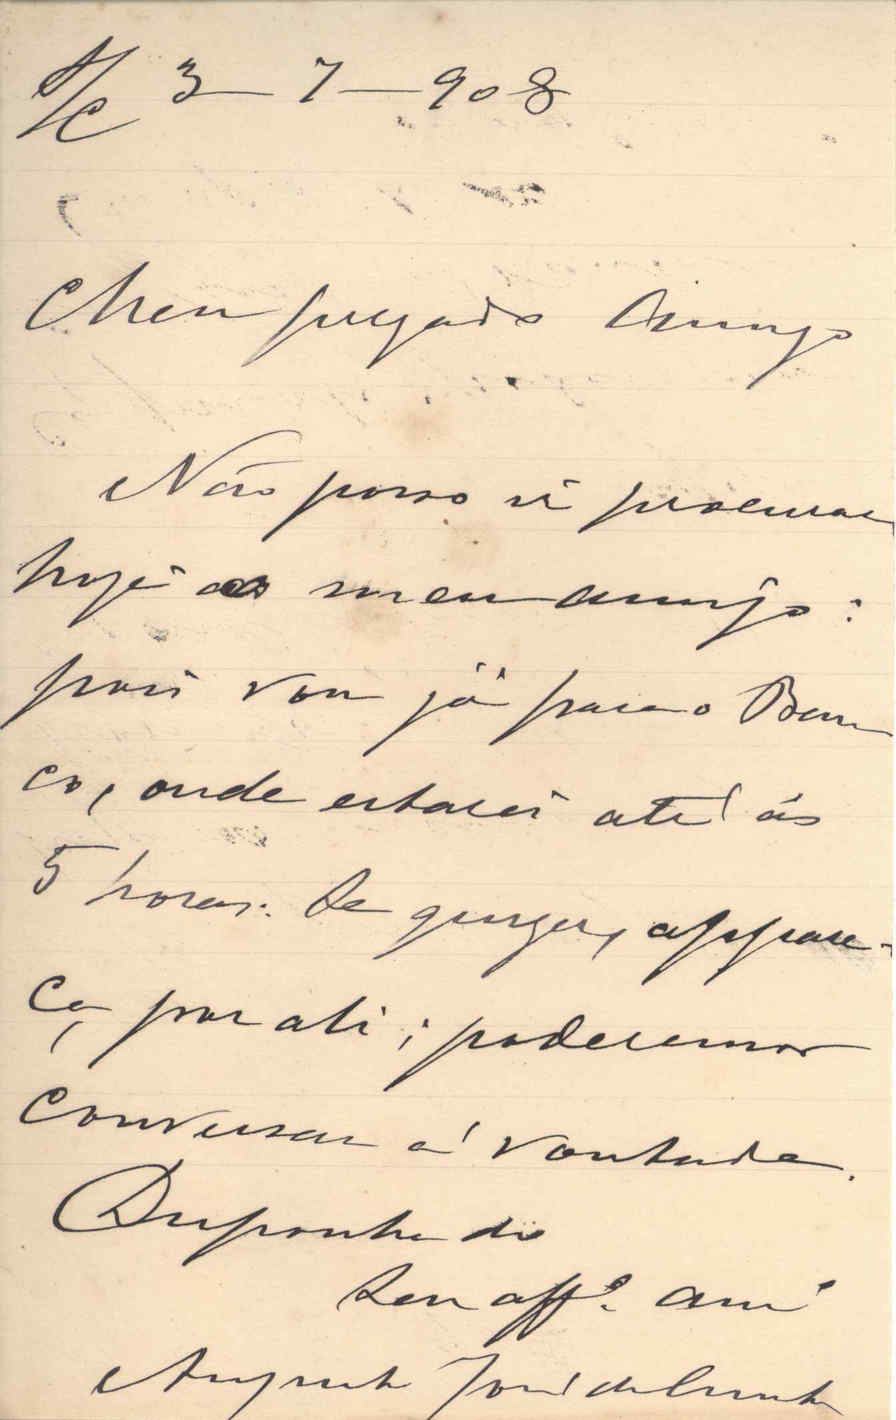 S/C 3-7-908
Meu presado Amigo
Não posso ir procurar
hoje ao meu amigo:
pois vou já para o Ban
co, onde estarei até ás
5 horas. Se quizer, appare-
ça por ali; poderemos
conversar á vontade.
Disponha do
Seu affº. amº
Augusto José da Cunha